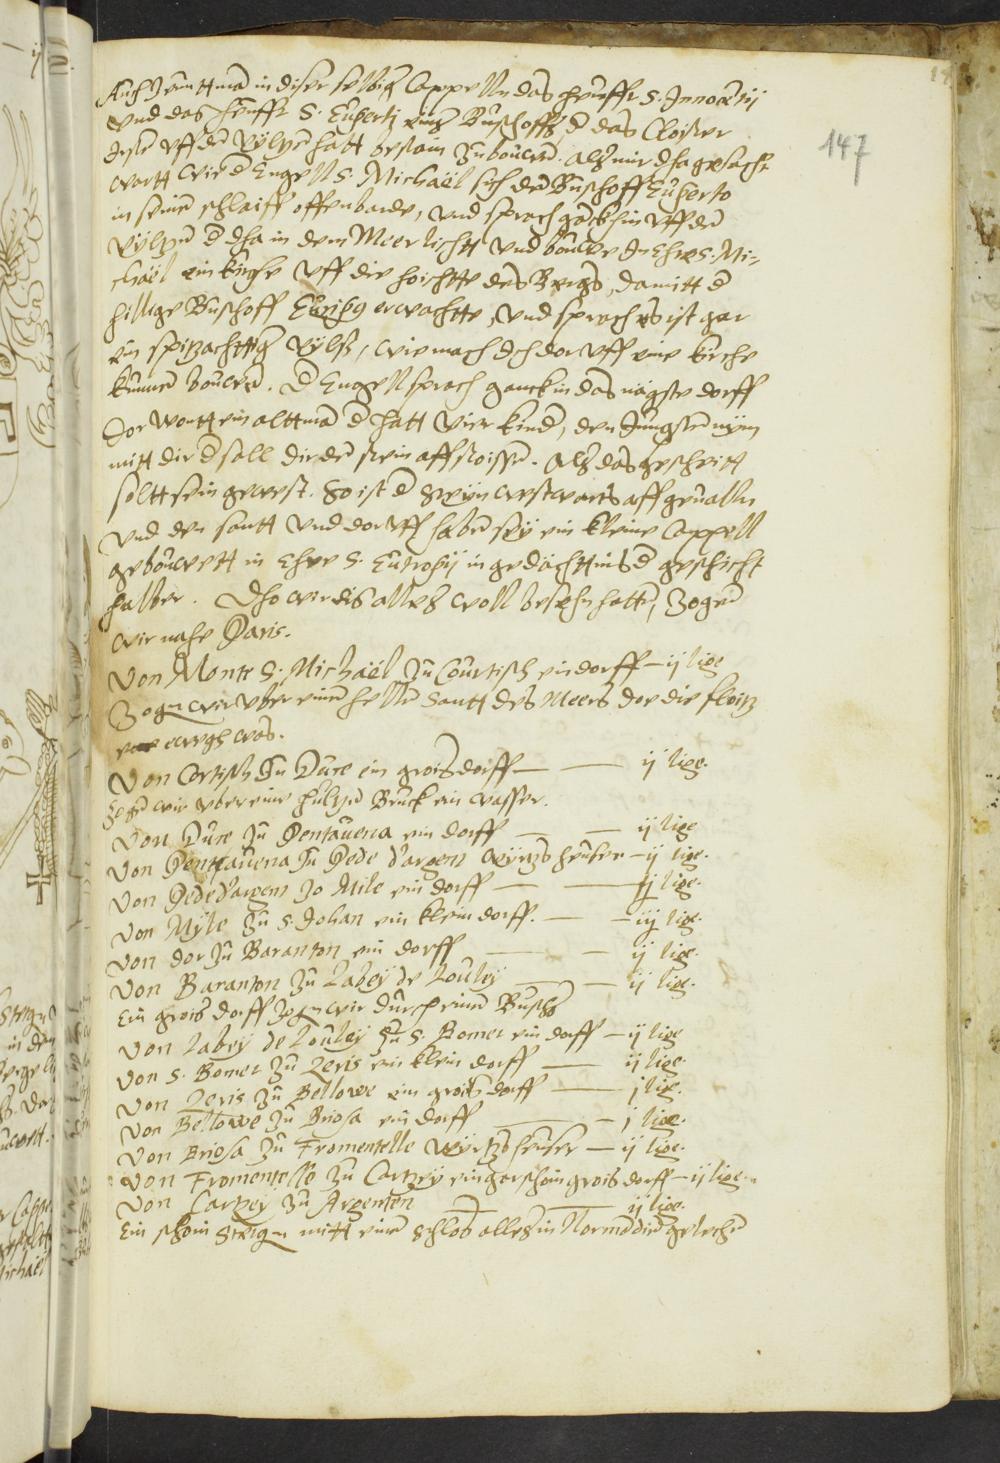 147
Auch kumtt man in diser selbig Cappelln das heufft S. Innocetij
und das heufft S. Euperti eins Buschoffs d das Cloister
irste uff den vylsen hatt bestain zu bouwen. Alß mir dha gesacht
wartt wie d Engell S. Michaël sich dem Buschoff Euperto
in seinē schlaiff offenbarde, und sprach ganck hin uff den
vylsen d dha in dem Meer licht und bouwe in Ehre S. Mi-
chaël ein kirche uff die hoichtte des Bergs, damitt d
hillige Buschoff erwachtte, und sprach es ist gar
ein spitzachttig vylß, wie mach Ich dor uff eine kirche
kunnen bouwen. D Engell sprach ganck in das nägste dorff
Dor wontt ein alttman d hatt vier kind, den Jungsten nym
mitt dir d sall dir den stein aff stoissen. Alß das geschritt
soltt sein gewest. So ist d steyn westwarts aff geuallen
und den santt und dor uff haben sey ein kleine Cappell
gebouwett in Ehre S. Eutropij in gedächttniß d geschicht
halber. Dho wir dis alles woll besehn hatten, Zogen
wir nahe Paris.
Von Monte S. Michaël zu Courtisch ein dorff – ij lige
Zogen wir uber einen hellen Santt des Meers dor die floitz
ewegh was.
Von Cortisch zu Dure ein grois dorff — — ij lige.
Zogen wir uber eine hultzen Bruck ein wasser.
Von Dure zu Pentauena ein dorff — — ij lige
Von Pentauena zu Pede d'argens wyrtzheuser – ij lige.
Von Pede d'argens zo Mile ein dorff — — ij lige.
Von Myle zu S. Johan ein klein dorff. — – iij lige.
Von dor zu Baranton ein dorff — – ij lige.
Von Baranton zu Labey de Louley — – ij lige.
Ein grois dorff zogen wir durch einen Busch
Von Labey de Louley zu S. Bomer ein dorff – ij lige
Von S. Bomer zu Leris ein klein dorff — ij lige.
Von Leris zu Bellowe ein grois dorff — j lige.
Von Bellowe zu Briosa ein dorff — – j lige.
Von Briosa zu Fromentelle wyrtzheuser – ij lige.
Von Fromentelle zu Carzey ein gar schoin grois dorff – ij lige.
Von Carzey zu Argenten — — ij lige.
Ein schoin stetgen mitt einē schlos alles in Normādien gelegen